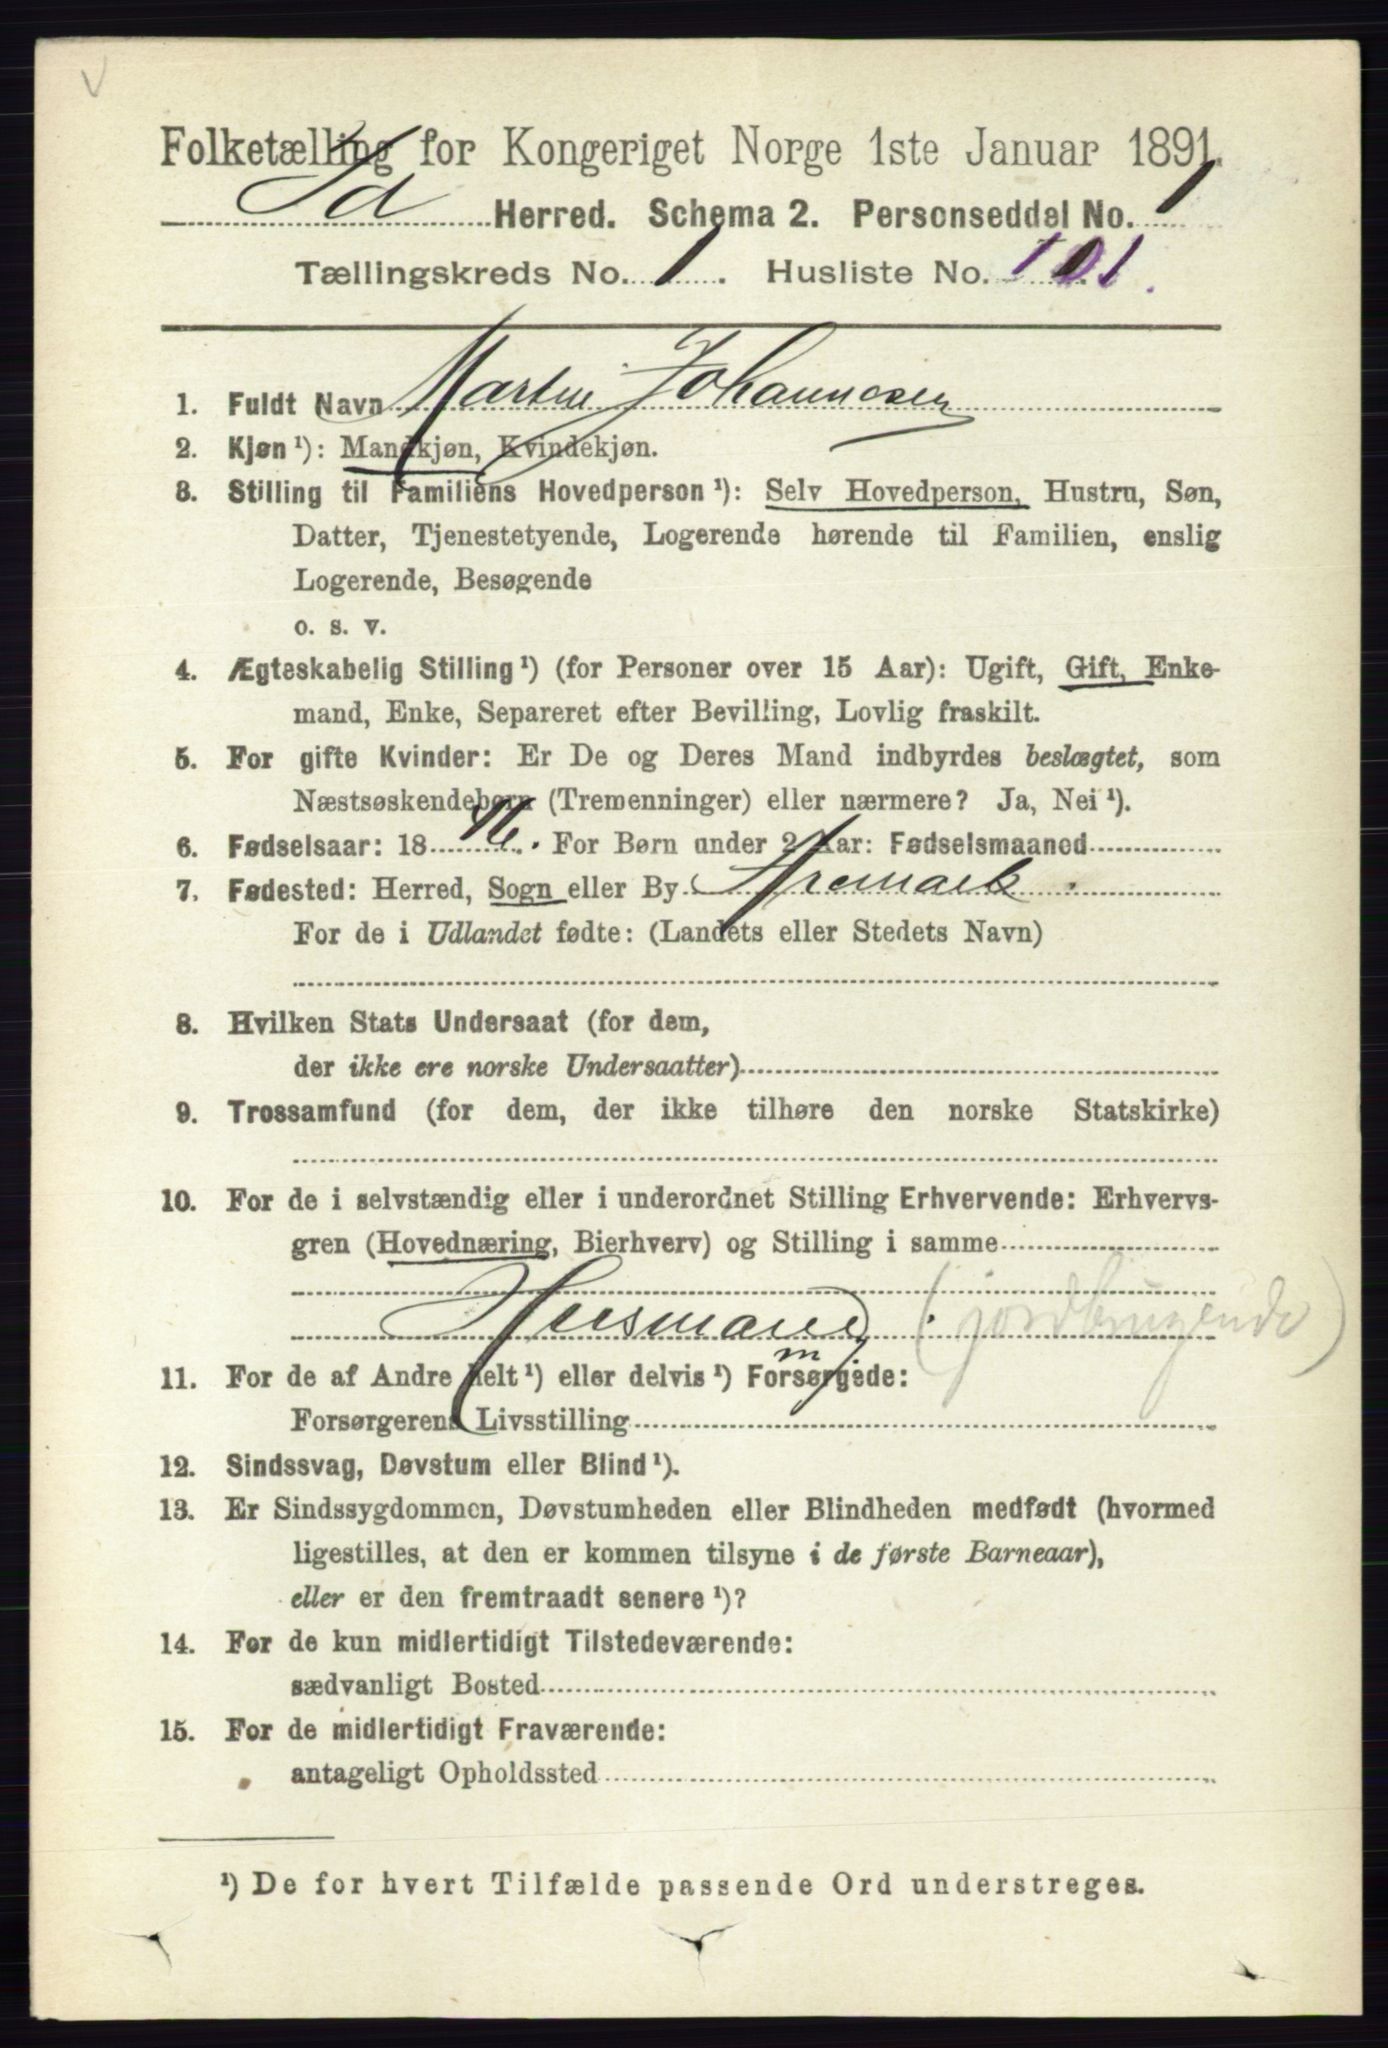 Folketælling for Kongeriget Norge 1ste Januar 1891.
Id Herred. Schema 2. Personseddel No. 1
Tællingskreds No. 1. Husliste No. 101.
1. Fuldt Navn Martin Johannesen
2. Kjøn ¹): Mandkjøn, Kvindekjøn.
3. Stilling til Familiens Hovedperson ¹): Selv Hovedperson, Hustru, Søn,
Datter, Tjenestetyende, Logerende hørende til Familien, enslig
Logerende, Besøgende
o. s. v.
4. Ægteskabelig Stilling ¹) (for Personer over 15 Aar): Ugift, Gift, Enke-
mand, Enke, Separeret efter Bevilling, Lovlig fraskilt.
5. For gifte Kvinder: Er De og Deres Mand indbyrdes beslægtet, som
Næstsøskendebørn (Tremenninger) eller nærmere? Ja, Nei ¹).
6. Fødselsaar: 18 . For Børn under 2 Aar: Fødselsmaaned
7. Fødested: Herred, Sogn eller By Aremark.
For de i Udlandet fødte: (Landets eller Stedets Navn)
8. Hvilken Stats Undersaat (for dem,
der ikke ere norske Undersaatter)
9. Trossamfund (for dem, der ikke tilhøre den norske Statskirke)
10. For de i selvstændig eller i underordnet Stilling Erhvervende: Erhvervs-
gren (Hovednæring, Bierhverv) og Stilling i samme
Husmand m j (jordbrugende)
11. For de af Andre helt ¹) eller delvis ¹) Forsørgede:
Forsørgerens Livsstilling
12. Sindssvag, Døvstum eller Blind ¹).
13. Er Sindssygdommen, Døvstumheden eller Blindheden medfødt (hvormed
ligestilles, at den er kommen tilsyne i de første Barneaar),
eller er den fremtraadt senere ¹)?
14. For de kun midlertidigt Tilstedeværende:
sædvanligt Bosted
15. For de midlertidigt Fraværende:
antageligt Opholdssted
¹) De for hvert Tilfælde passende Ord understreges.